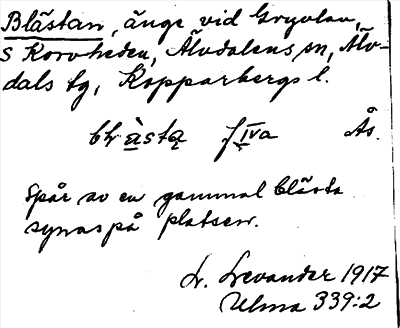 Blästan, änge vid Gryvlan,
S Korvheden, Älvdalens sn, Älv-
dals tg, Kopparbergs l.
blr̀ästą f IVa Ås.
Spår av en gammal blästa
synas på platsen.
L. Levander 1917
Ulma 339:2